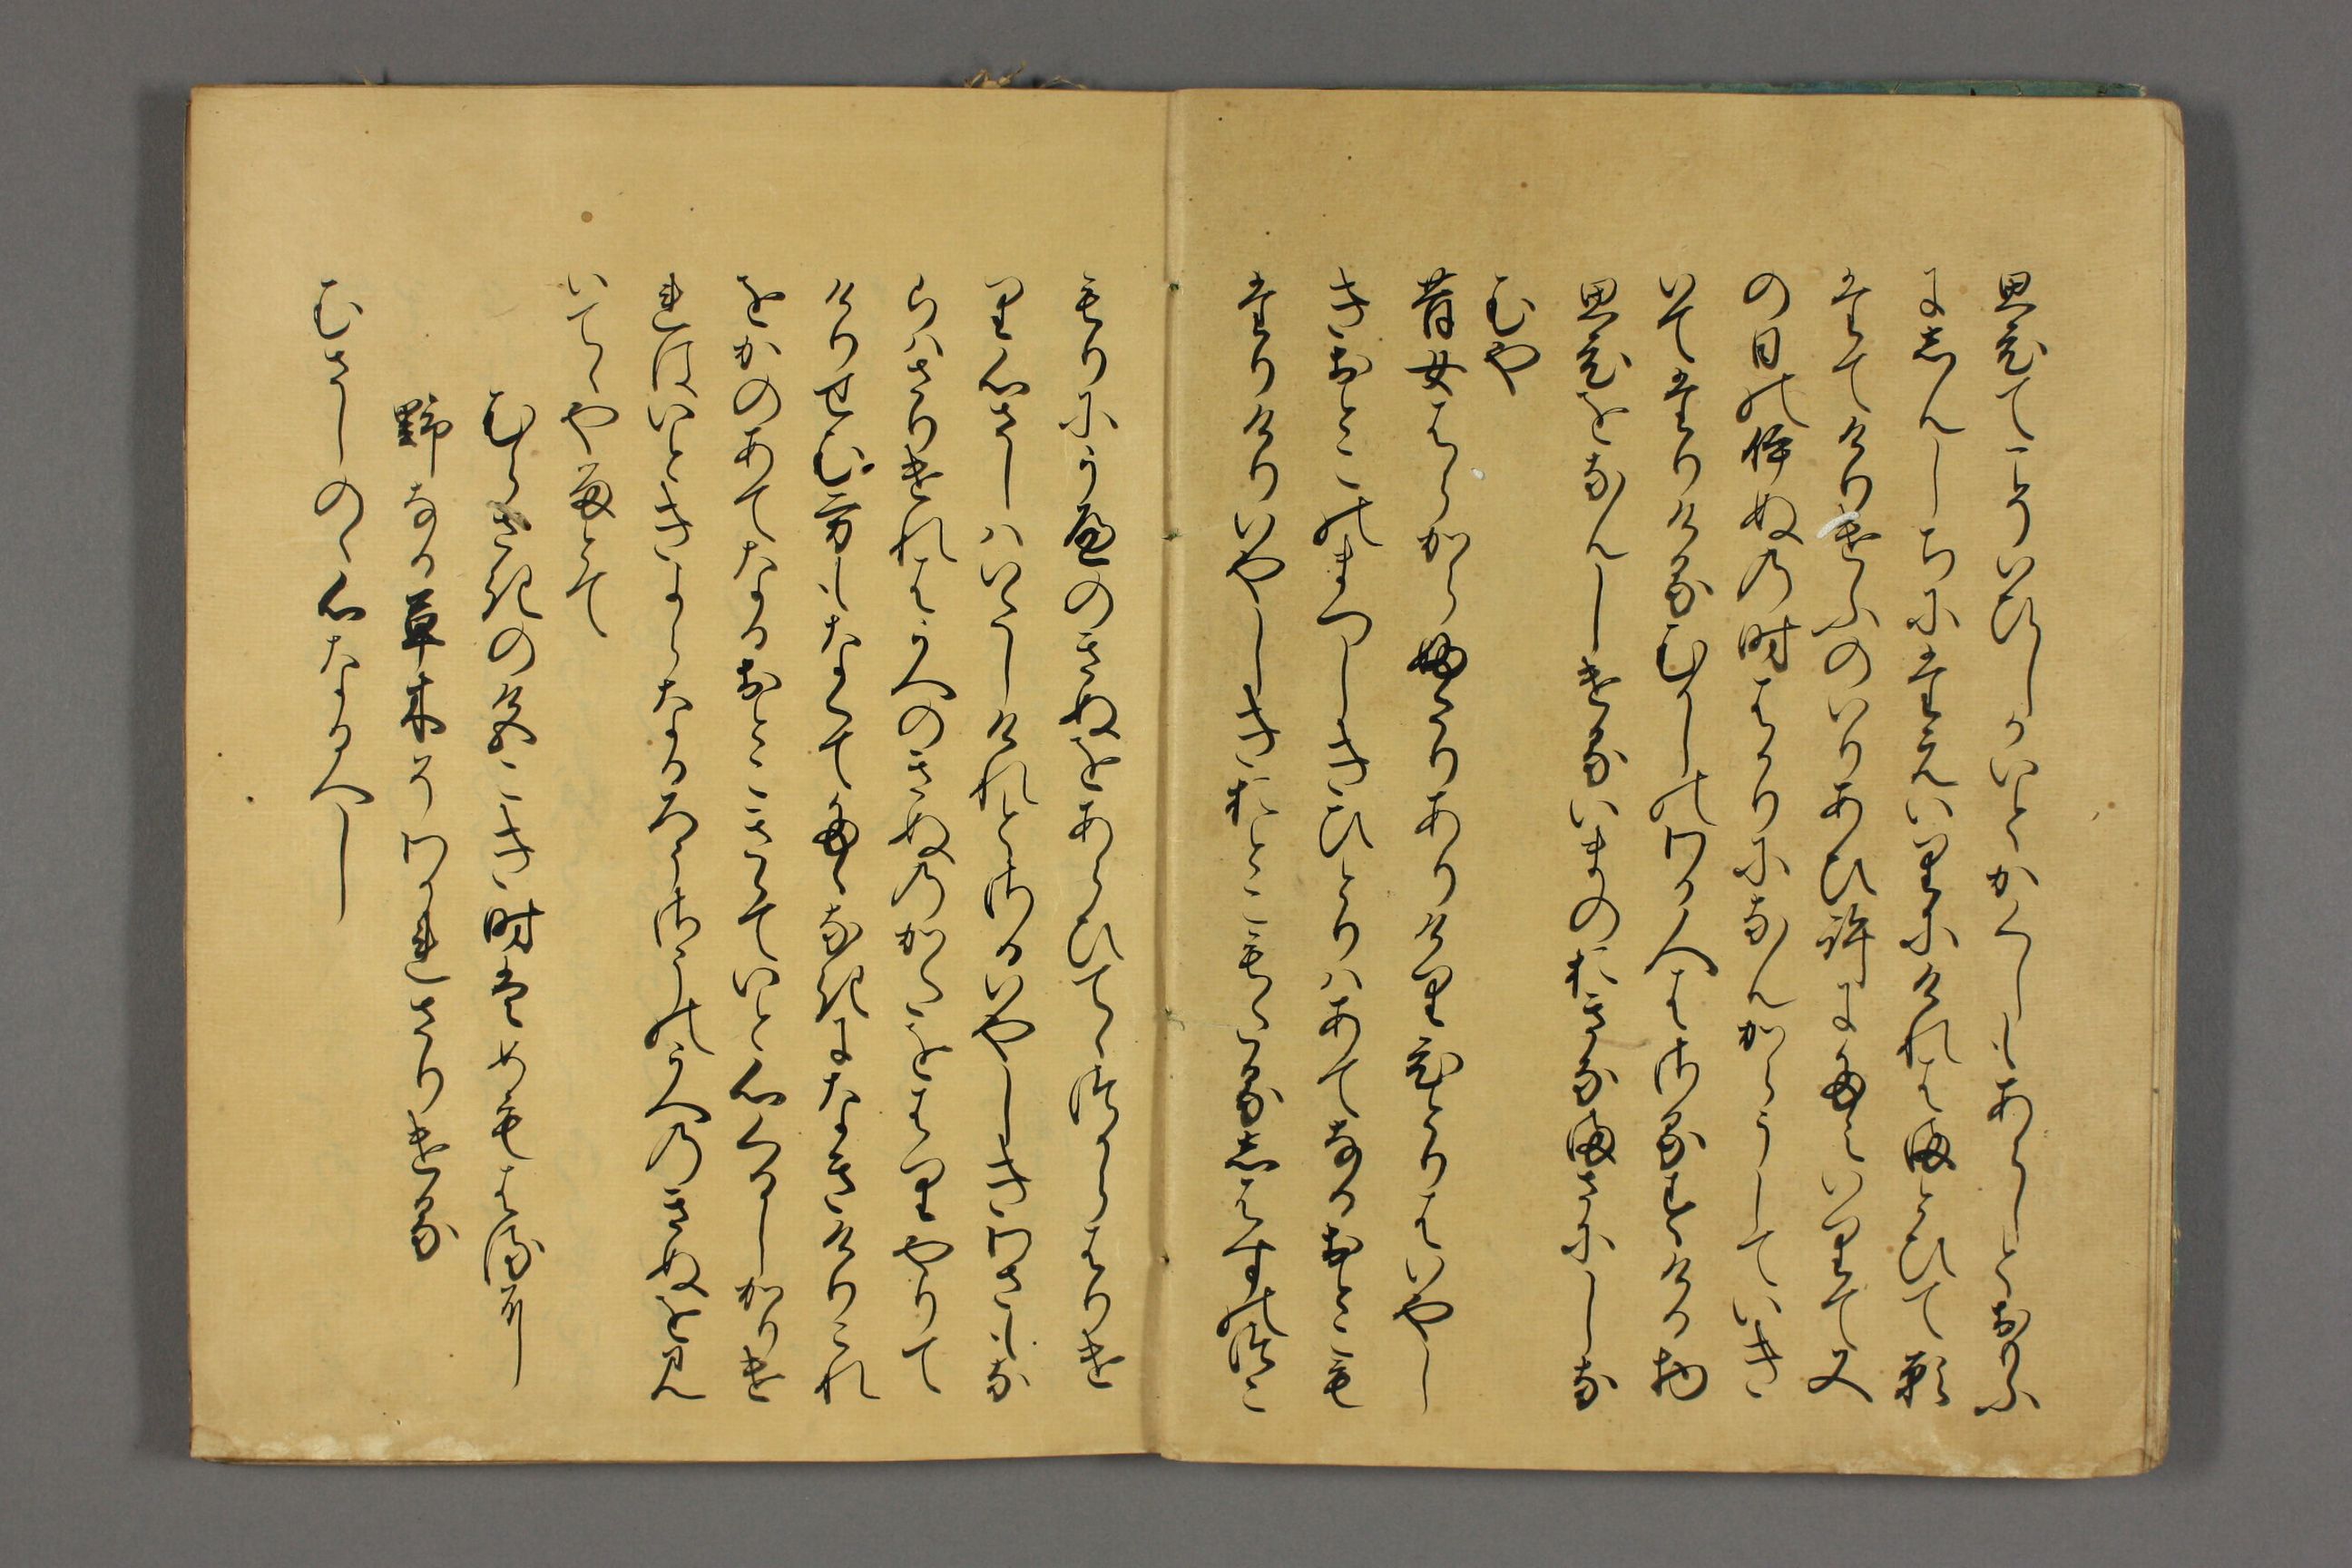 思ひてこそいひしかいとかくしもあらしとおもふ
にしんしちにたえいりにけれはまとひて願
たてけりけふのいりあひ許にたえいりて又
の日のいぬの時はかりになんからうしていき
いてたりけるむかしのわか人はさるすける物
思ひをなんしけるいまのおきなまさにしな
むや
昔女はらからふたりありけりひとりはいやし
きおとこのまつしきひとりはあてなるおとこも
たりけりいやしきおとこもたるしはすのつこ
もりにうへのきぬをあらひてゝつからはりけ
り心さしはいたしけれとさるいやしきわさもな
らはさりけれはうへのきぬのかたをはりやりて
けりせむ方もなくてたゝなきになきけりこれ
をかのあてなるおとこきゝていと心くるしかりけ
れはいときよらなるろうさうのうへのきぬを見
いてゝやるとて
むらさきの色こき時はめもはるに
野なる草木そわかれさりける
むさしのゝ心なるへし